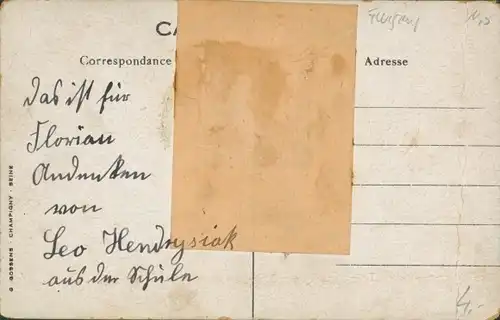 CA
Correspondance
Adresse
das ist für
Florian
Andenken
von
Leo Hendrysiak
aus der Schule
G. GOSSENS - CHAMPIGNY - SEINE
4.-